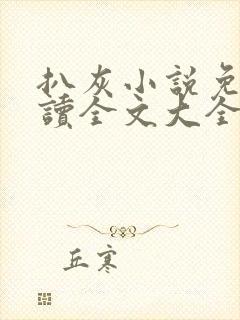 扒灰小説免
讀全文大全
丘寒